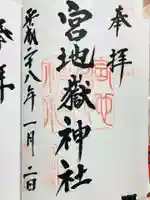 奉拝
宮地嶽神社
平成二十八年一月二日